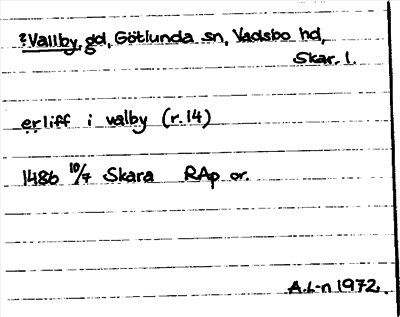 ?Vallby, gd, Götlunda sn, Vadsbo hd,
Skar. l.
erliff i valby (r.14)
1486 10/7 Skara RAp or.
A.L-n 1972.